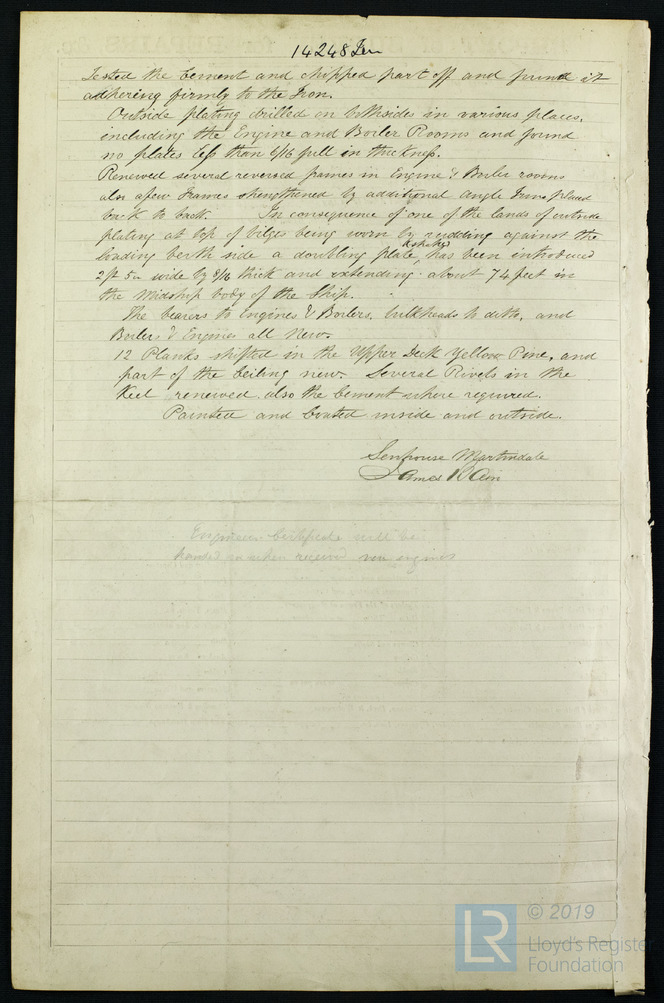 14248 Iron
Tested the Cement and chipped part off and found it
adhering firmly to the Iron.
Outside plating drilled on both sides in various places,
including the Engine and Boiler Rooms and found
no plates less than 6/16 full in thickness.
Renewed several reversed frames in Engine & Boiler rooms
also a few Frames strengthened by additional Angle Irons placed
back to back. In consequence of one of the lands of outside
plating at top of bilges being worn by rubbing against the
loading berth side a doubling plate, has been introduced
2 ft 5 in wide by 8/16 thick and extending about 74 feet in
the Midship body of the Ship.
The bearers to Engines & Boilers, bulkheads to ditto, and
Boilers & Engines all New.
12 Planks shifted in the Upper Deck Yellow Pine, and
part of the Ceiling new. Several Rivets in the
Keel renewed also the Cement where required.
Painted and Coated inside and outside.
Senhouse Martindale
James
Engineers Certificate will be
handed in when received new engines
© 2019
LR
Lloyd's Register
Foundation